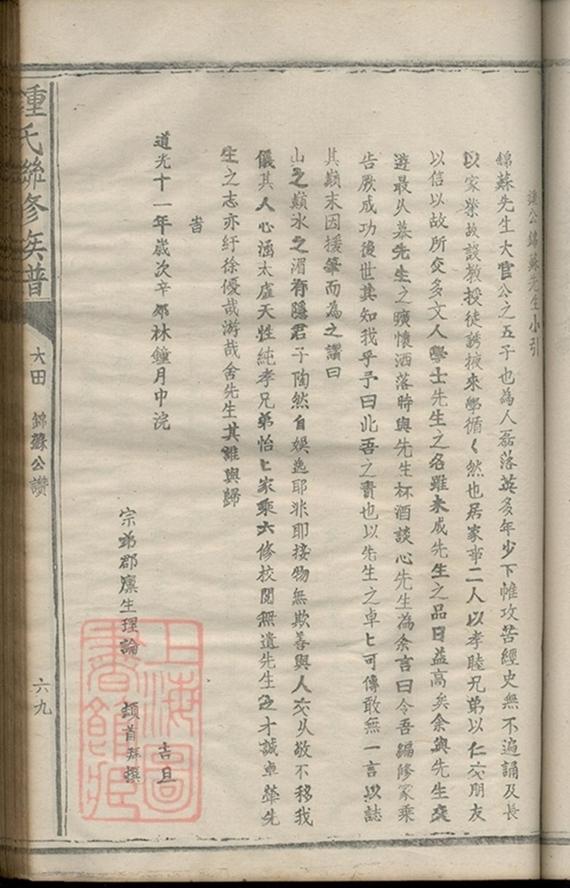 讚公錦蘇先生小引
錦蘇先生大官公之五子也為人磊落英多年少下帷攻苦經史無不遍誦及長
以家業故設教授徒誘掖來學循〱然也居家事二人以孝睦兄弟以仁交朋友
以信以故所交多文人學士先生之名雖未成先生之品日益高矣余與先生交
遊最久慕先生之曠懷洒落時與先生杯酒談心先生為余言曰今吾編修家乘
告厥成功後世其知我乎予曰此吾之責也以先生之卓〻可傳敢無一言以誌
其巔末因援筆而為之讚曰
山之巔水之湄有隱君子陶然自娛逸耶非耶接物無欺善與人交久敬不移我
儀其人心涵太虛天性純孝兄弟怡〻家乘六修校閱無遺先生之才誠卓犖先
生之志亦紆徐優哉游哉舍先生其誰與歸
旹
道光十一年歲次辛夘林鐘月中浣 吉旦
宗弟郡廪生理論 頓首拜撰
鍾氏聯修族譜
大田 錦蘇公讚
六九
上海圖書館藏